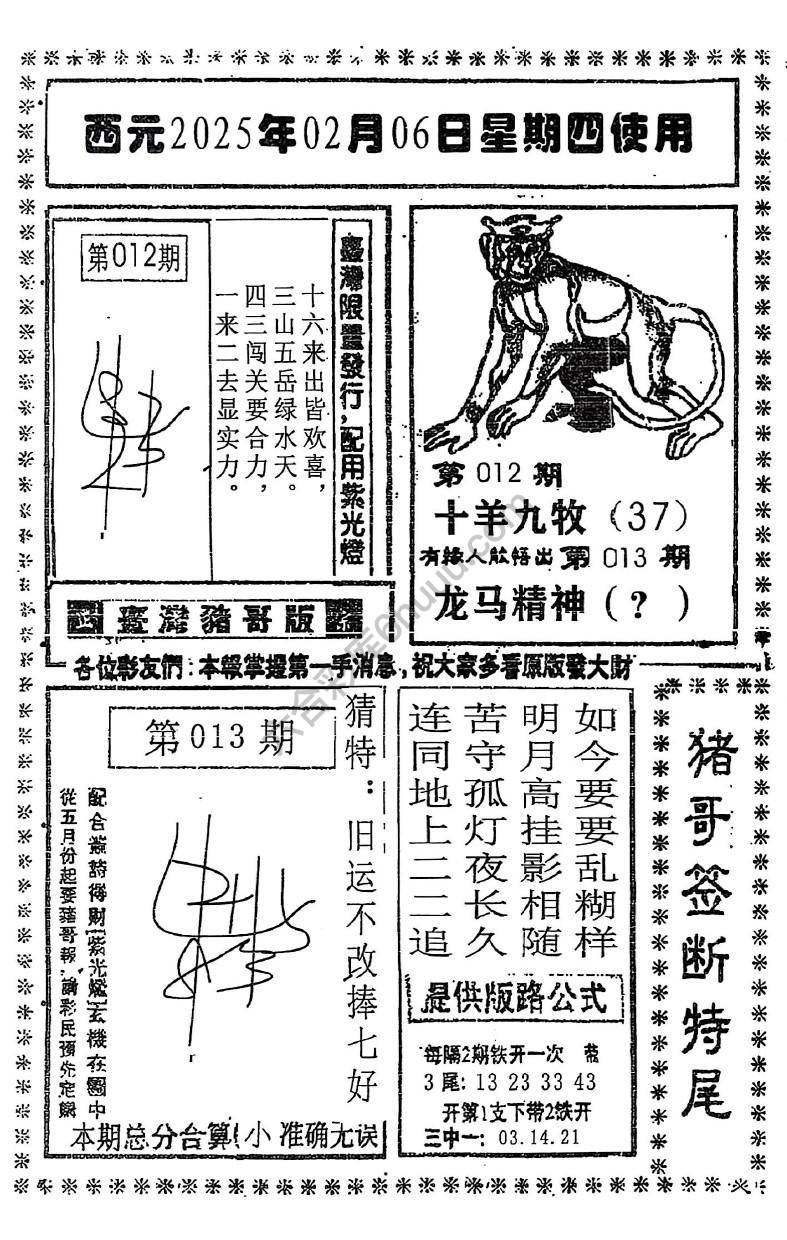 西元2025年02月06日星期四使用
第012期
臺灣限量發行,配用紫光燈
十六来出皆欢喜,
三山五岳绿水天。
四三闯关要合力,
一来二去显实力。
臺灣豬哥版
第 012 期
十羊九牧 (37)
有緣人能悟出 第 013 期
龙马精神 ( ? )
各位彩友們:本報掌握第一手消息,祝大家多看原版發大財
第 013 期
猜特:旧运不改捧七好
從五月份起要豬哥報,請彩民預先定
本期总分合算(小 准确无误
如今要要乱糊样
明月高挂影相随
苦守孤灯夜长久
连同地上二二追
提供版路公式
每隔2期铁开一次 带
3 尾: 13 23 33 43
开第1支下带2铁开
三中一: 03.14.21
猪哥签断特尾